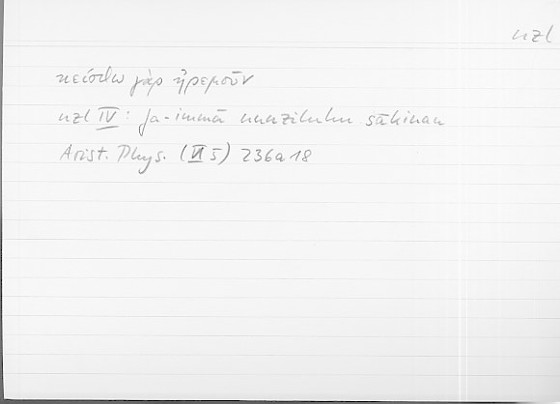 nzl
κείσθω γὰρ ἠρεμοῦν
nzl IV: fa-immā nunziluhu sākinan
Arist. Phys. (VI 5) 236a18